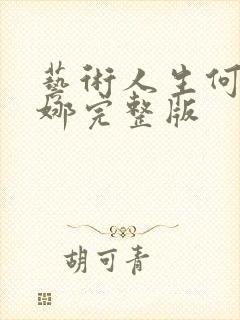 藝術人生何
娜完整版
胡可青